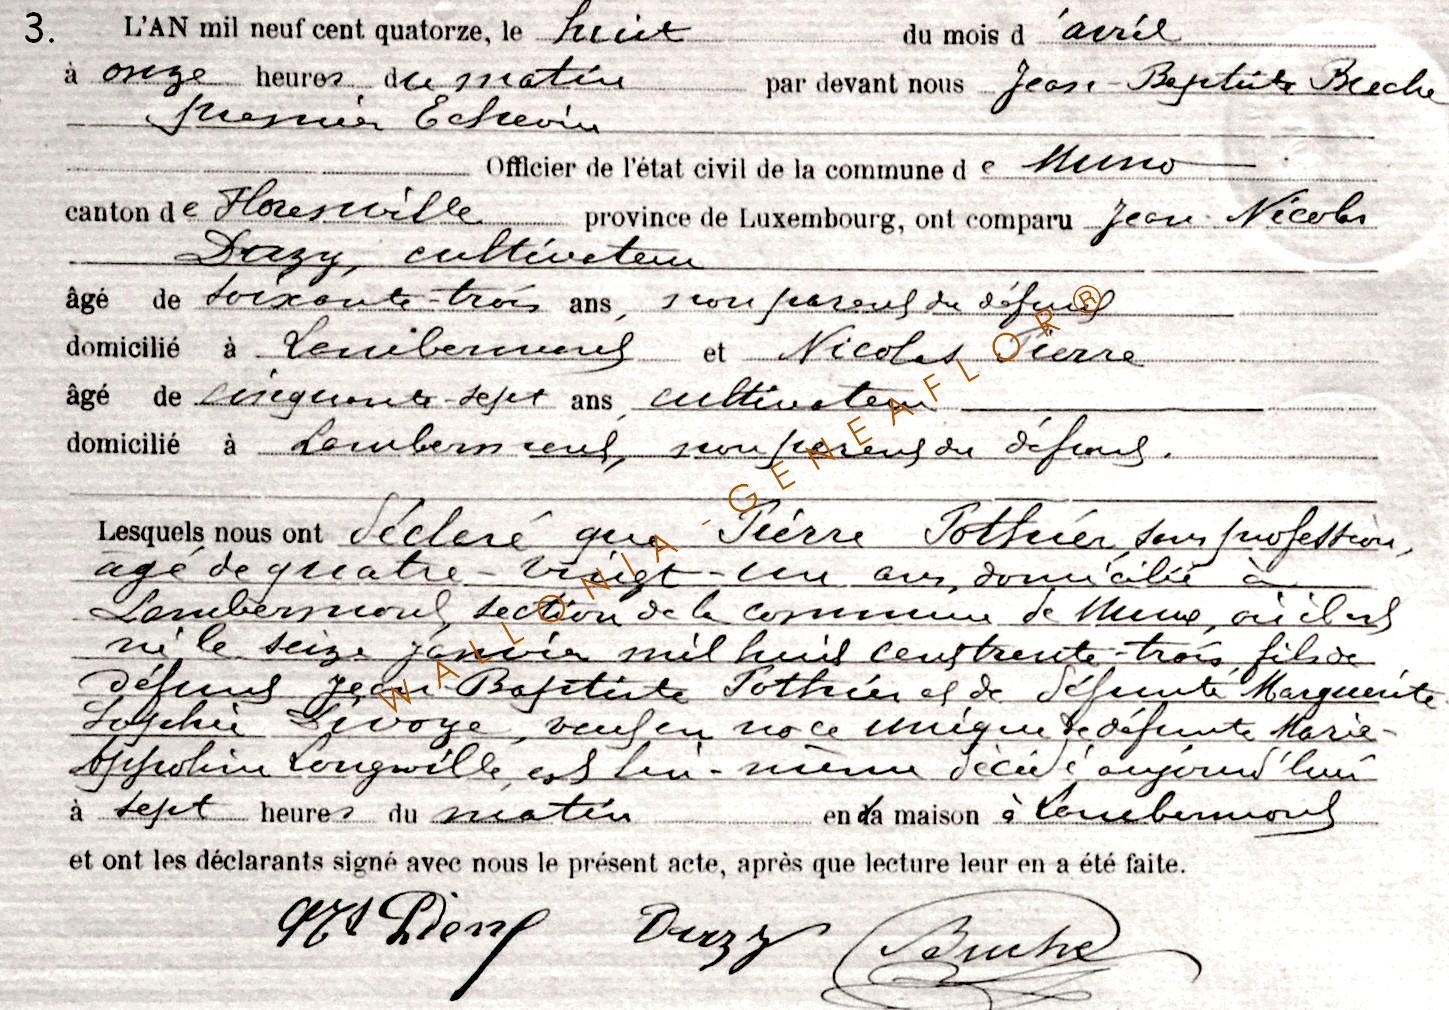 3. L'AN mil neuf cent quatorze, le huit du mois d'avril
à onze heures du matin par devant nous Jean-Baptiste Bruche
premier Echevin
Officier de l'état civil de la commune de Muno
canton de Florenville province de Luxembourg, ont comparu Jean Nicolas
Dazy, cultivateur
âgé de soixante-trois ans, non parent du défunt
domicilié à Lambermont et Nicolas Pierre
âgé de cinquante-sept ans, cultivateur
domicilié à Lambermont, non parent du défunt.
Lesquels nous ont déclaré que Pierre Pothier, sans profession,
âgé de quatre-vingt-un ans, domicilié à
Lambermont, section de la commune de Muno, où il est
né le seize janvier mil huit cent trente-trois, fils de
défunt Jean Baptiste Pothier et de défunte Marguerite
Sophie Livoye, veuf en noce unique de défunte Marie-
Appoline Longville, est lui-même décédé aujourd'hui
à sept heures du matin en sa maison à Lambermont
et ont les déclarants signé avec nous le présent acte, après que lecture leur en a été faite.
Nas Pierre Dazy Bruche
WALLONIA - GENEAFLOR ®